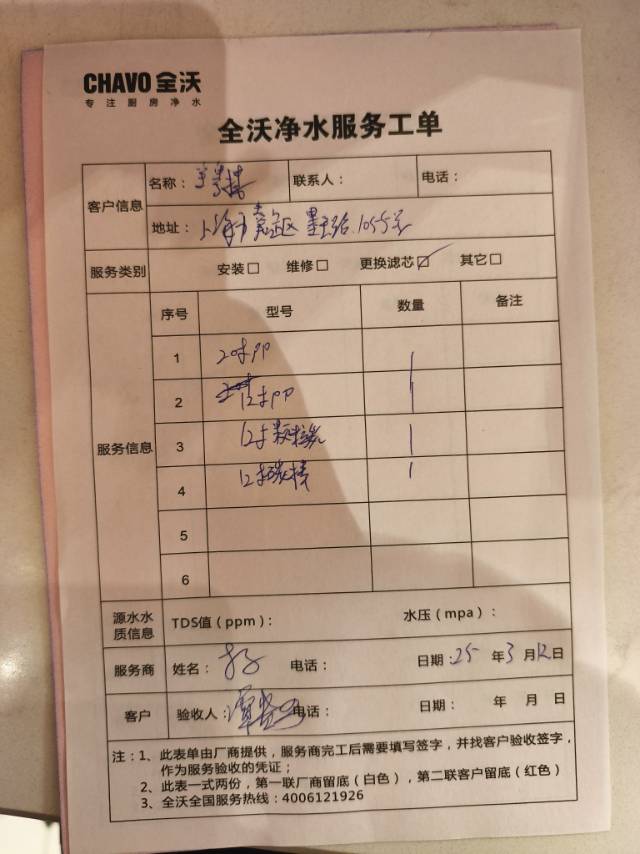 CHAVO 全沃
专注厨房净水
全沃净水服务工单
客户信息
名称：
联系人：
电话：
地址：上海市嘉定区 墨玉路1055号
服务类别
安装□ 维修□ 更换滤芯☑ 其它□
服务信息
序号 型号 数量 备注
1 20寸PP 1
2 12寸PP 1
3 12寸颗粒炭 1
4 12寸碳棒 1
5
6
源水水质信息
TDS值（ppm）： 水压（mpa）：
服务商 姓名： 电话： 日期：25 年 3 月 12 日
客户 验收人： 电话： 日期： 年 月 日
注：1、此表单由厂商提供，服务商完工后需要填写签字，并找客户验收签字，
作为服务验收的凭证；
2、此表一式两份，第一联厂商留底（白色），第二联客户留底（红色）
3、全沃全国服务热线：4006121926